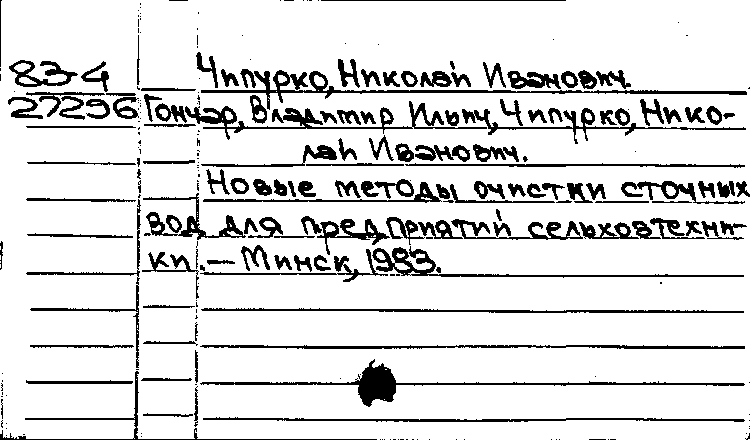 83-4 Чипурко, Николай Иванович.
27296 Гончар, Владимир Ильич, Чипурко, Нико-
лай Иванович.
Новые методы очистки сточных
вод для предприятий сельхозтехни-
ки. — Минск, 1983.